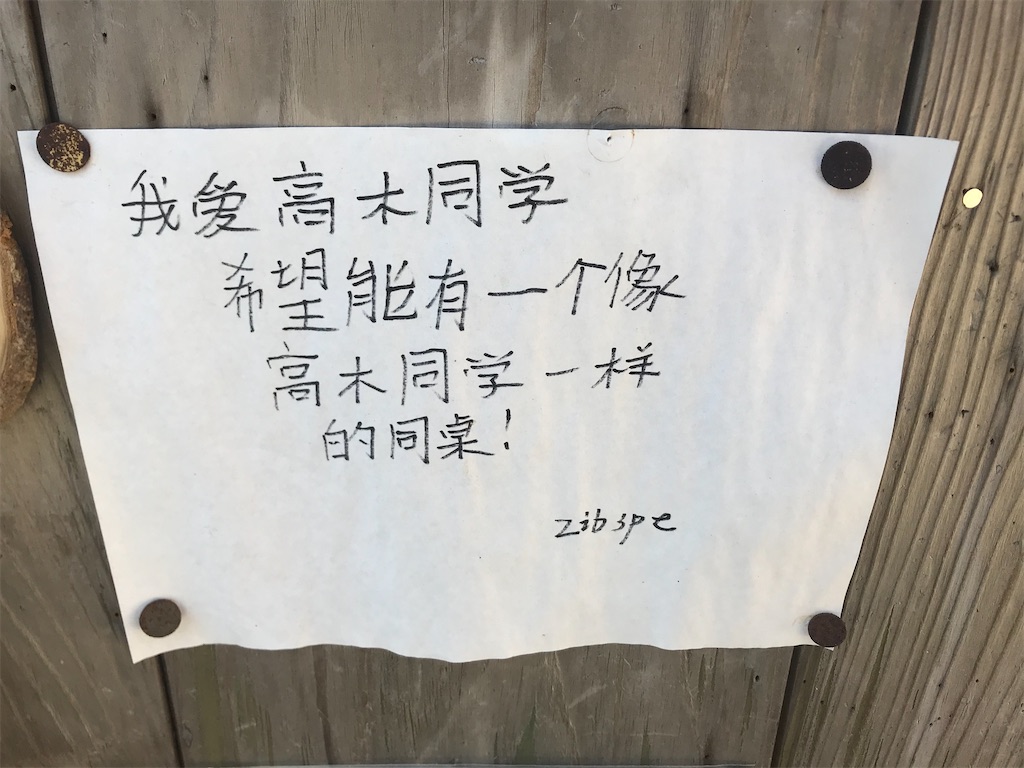 我爱高木同学
希望能有一个像
高木同学一样
的同桌！
zibspe